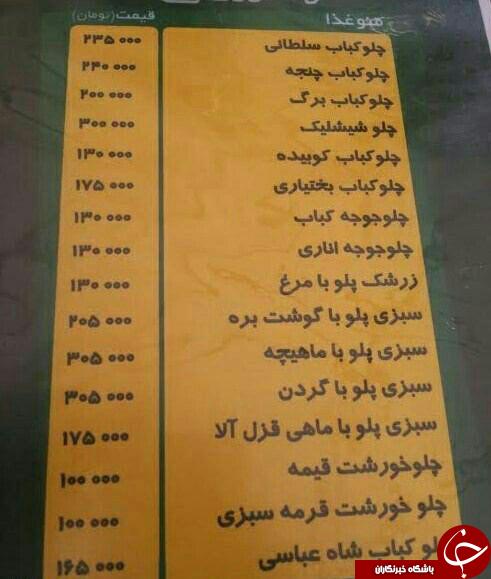 منو غذا قیمت (تومان)
چلوکباب سلطانی ۲۳۵ ۰۰۰
چلوکباب چنجه ۲۴۰ ۰۰۰
چلوکباب برگ ۲۰۰ ۰۰۰
چلو شیشلیک ۳۰۰ ۰۰۰
چلوکباب کوبیده ۱۳۰ ۰۰۰
چلوکباب بختیاری ۱۷۵ ۰۰۰
چلوجوجه کباب ۱۳۰ ۰۰۰
چلوجوجه اناری ۱۳۰ ۰۰۰
زرشک پلو با مرغ ۱۳۰ ۰۰۰
سبزی پلو با گوشت بره ۲۰۵ ۰۰۰
سبزی پلو با ماهیچه ۳۰۵ ۰۰۰
سبزی پلو با گردن ۳۰۵ ۰۰۰
سبزی پلو با ماهی قزل آلا ۱۷۵ ۰۰۰
چلوخورشت قیمه ۱۰۰ ۰۰۰
چلو خورشت قرمه سبزی ۱۰۰ ۰۰۰
کباب شاه عباسی ۱۶۵ ۰۰۰
باشگاه خبرنگاران